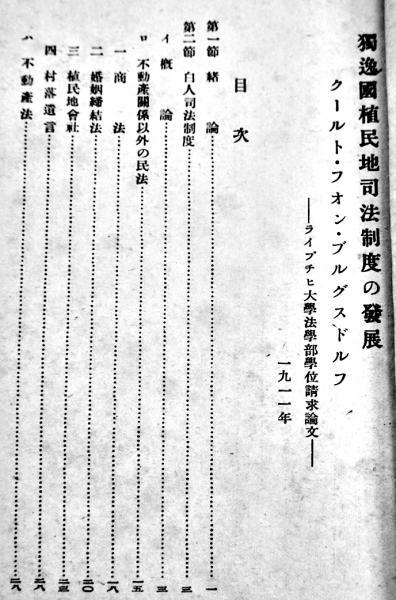 獨逸國植民地司法制度の發展
クールト・フオン・ブルグスドルフ
――ライプチヒ大學法學部學位請求論文――
一九一一年
目次
第一節 緒論……一
第二節 白人司法制度……三
イ 概論……三
ロ 不動產關係以外の民法……一五
一 商法……一八
二 婚姻締結法……二〇
三 植民地會社……二三
四 村落遺言……二八
ハ 不動產法……二八